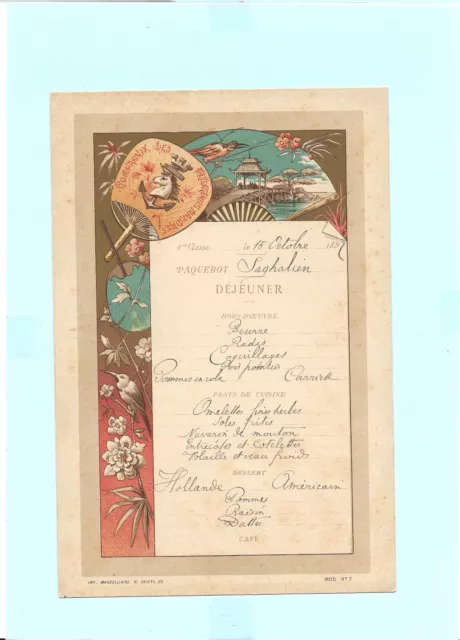 COMPAGNIE DES MESSAGERIES MARITIMES
1ère Classe le 15 Octobre 189
PAQUEBOT Saghalien
DÉJEUNER
HORS-D'ŒUVRE
Beurre
Radis
Coquillages
Pommes en robe Carrick
PLATS DE CUISINE
Omelettes fines herbes
Soles frites
Navarin de mouton
Entrecôtes et Côtelettes
Volaille et veau froids
DESSERT
Hollande Américain
Pommes
Raisin
Dattes
CAFÉ
IMP. MARSEILLAISE R. SAINTE, 39
MOD. Nº 7